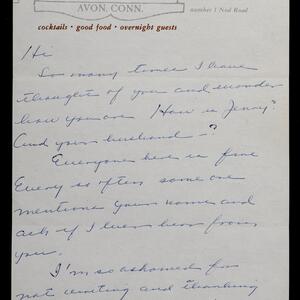 AVON, CONN.
number 1 Nod Road
cocktails · good food · overnight guests
Hi
So many times I have
thought of you and wonder
how you are How is Jenny?
And your husband - ?
Everyone here is fine
Every so often some one
mentions your name and
asks if I hear from
you.
I'm so ashamed for
not writing and thanking